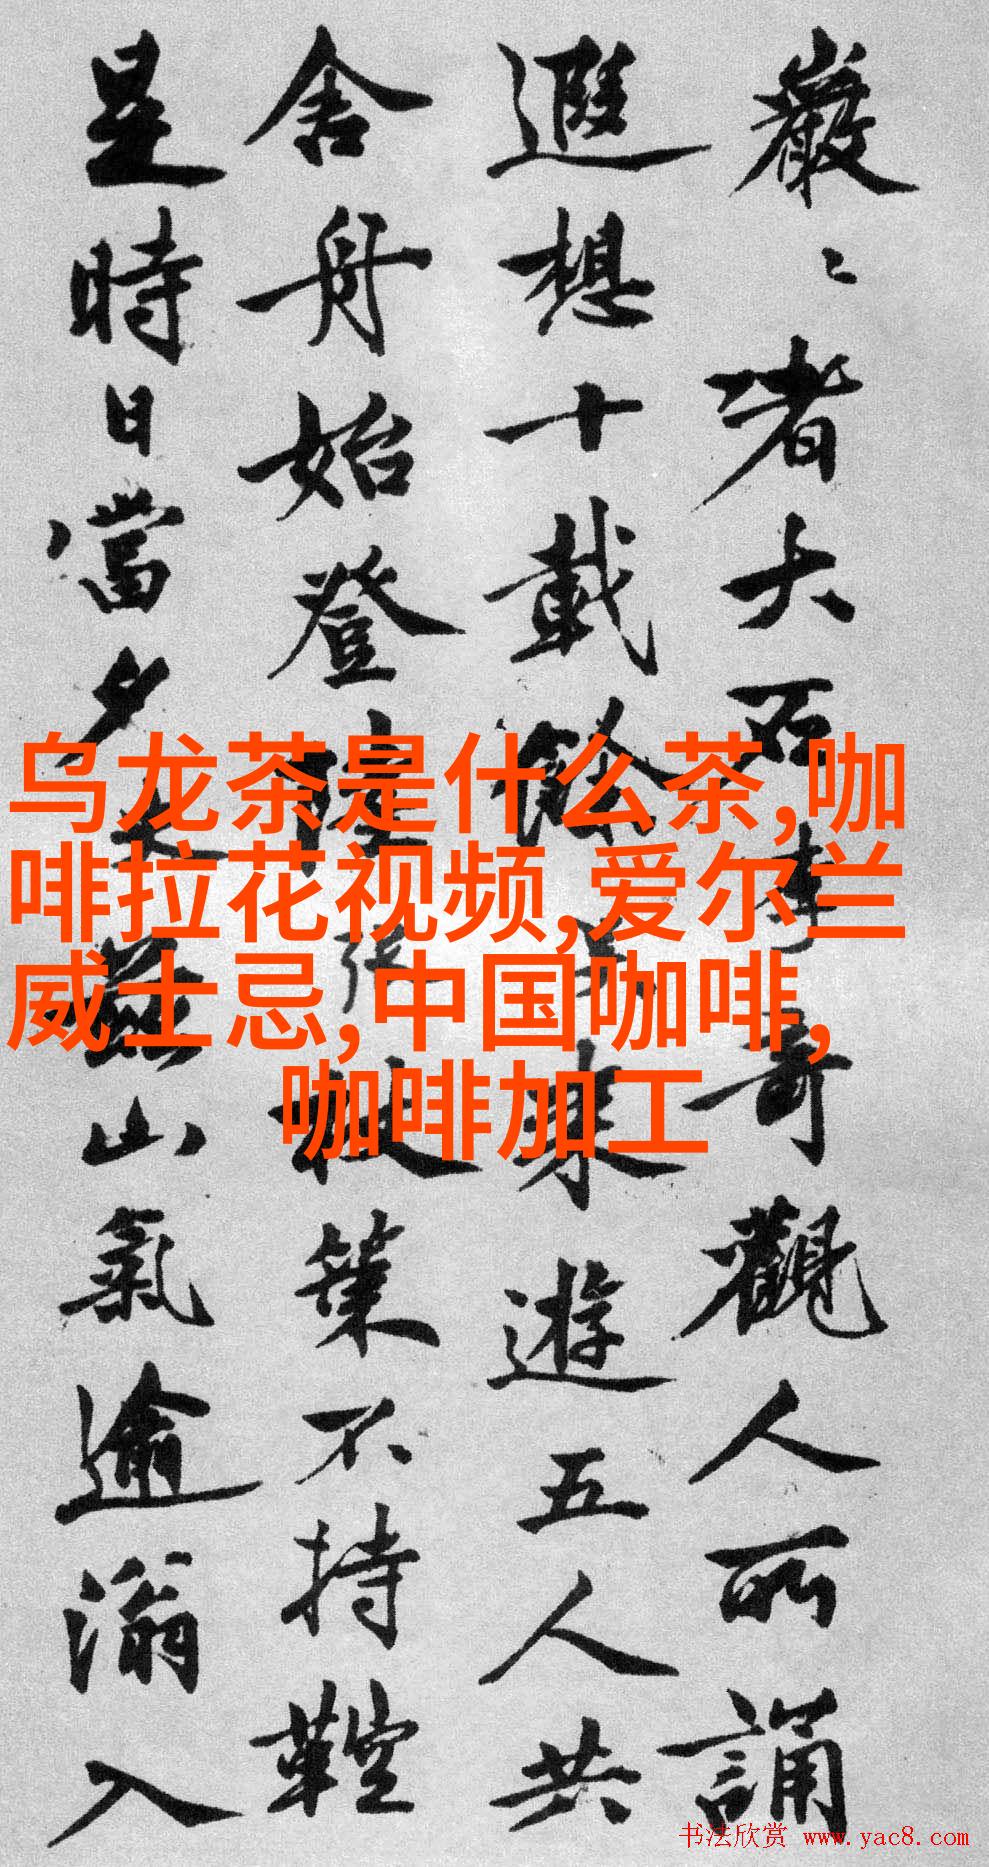 巖〻者大石
奇觀人所誦
遐想十載餘
來遊五人共
舍舟始登陸
策不持鞚
是時日當夕
山氣逾滃入
乌龙茶是什么茶,咖
啡拉花视频,爱尔兰
威士忌,中国咖啡,
咖啡加工
书法欣赏 www.yac8.com